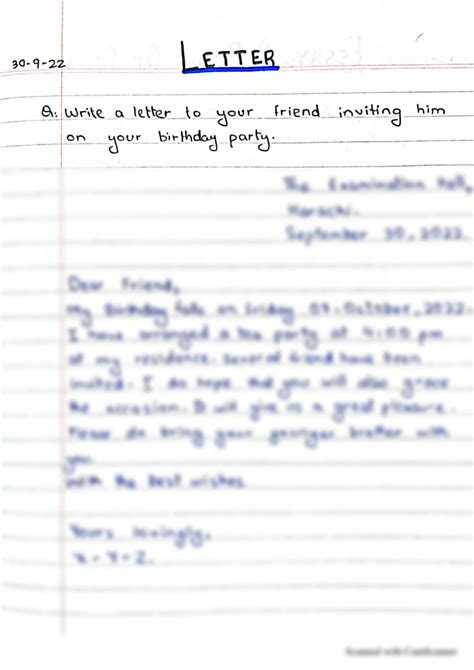 LETTER
30-9-22
Q: Write a letter to your friend inviting him
on your birthday party.
The Examination Hall,
Karachi.
September 30, 2022.
Dear Friend,
My Birthday falls on Friday 07, October, 2022.
I have arranged a tea party at 4:00 pm
at my residence. Several friend have been
invited. I do hope that you will also grace
the occasion. It will give us a great pleasure.
Please do bring your younger brother with
you.
With the best wishes.
Yours lovingly,
X-Y-Z.
Scanned with CamScanner